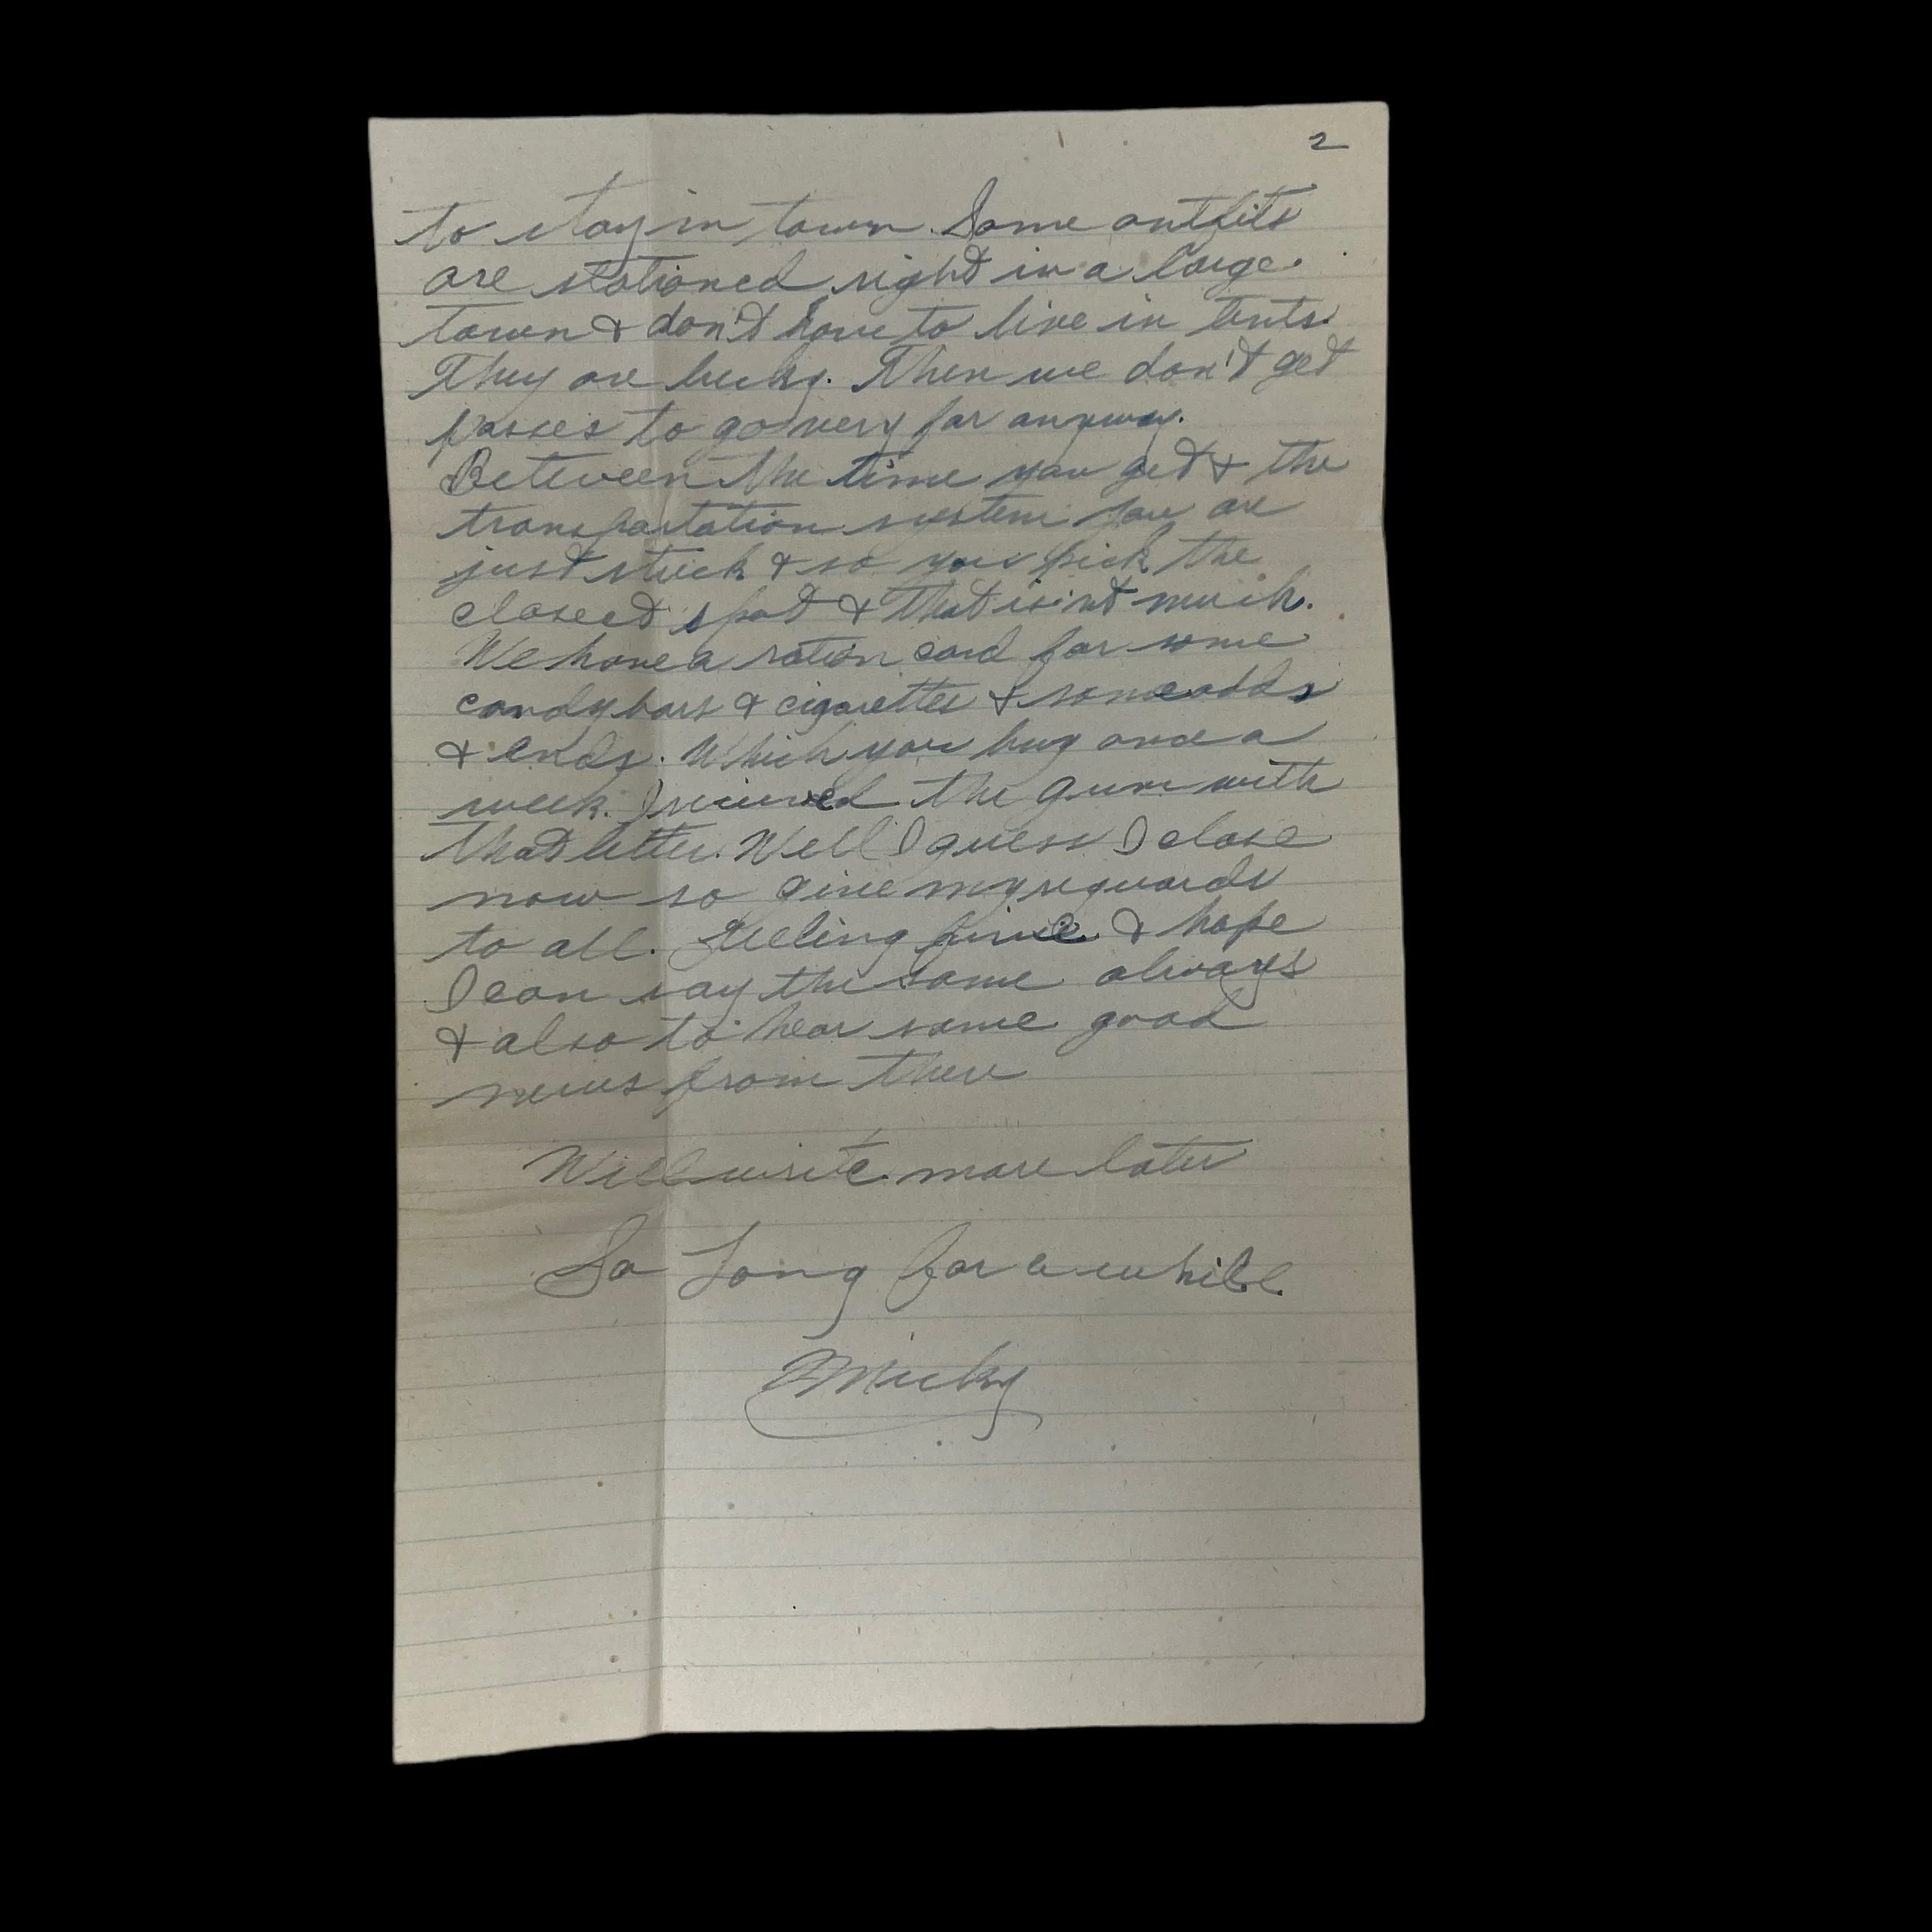 2
to stay in town. Some outfits
are stationed right in a large
town & don't have to live in tents.
They are lucky. Then we don't get
passes to go very far anyway.
Between the time you get & the
transportation system you are
just stuck & so you pick the
closest spot & that isint much.
We have a ration card for some
candy bars & cigarettes & some odds
& ends. Which you buy once a
week. I recieved the gum with
that letter. Well I guess I close
now so give my reguards
to all. Feeling fine & hope
I can say the same always
& also to hear some good
news from there
Will write more later
So Long for a while
Micky